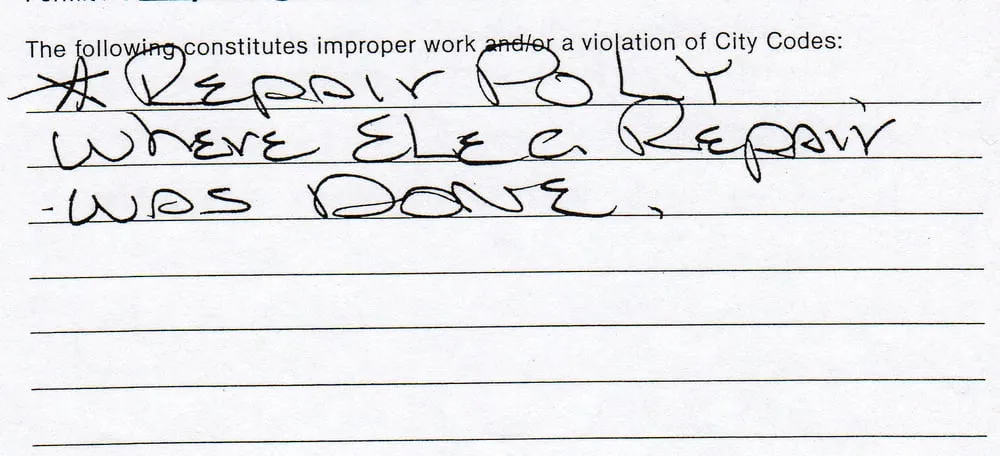 The following constitutes improper work and/or a violation of City Codes:
* REPAIR POLY
WHERE ELEC REPAIR
- WAS DONE.